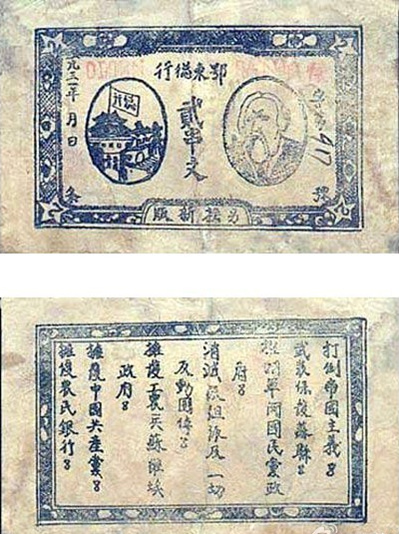 鄂東農行
貳串文
417
月 日
新版
打倒帝國主義!
武裝保護蘇聯!
推翻軍閥國民黨政
府!
消滅改組派及一切
反動團体!
擁護工農兵蘇維埃
政府!
擁護中國共產黨!
擁護農民銀行!